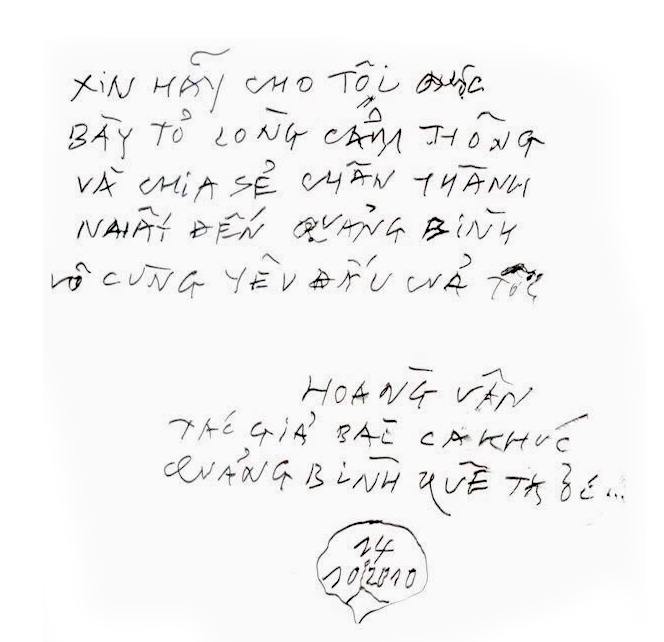 XIN HÃY CHO TÔI ĐƯỢC
BÀY TỎ LÒNG CẢM THÔNG
VÀ CHIA SẺ CHÂN THÀNH
NHẤT ĐẾN QUẢNG BÌNH
VÔ CÙNG YÊU DẤU CỦA TÔI
HOÀNG VÂN
TÁC GIẢ BÀI CA KHÚC
QUẢNG BÌNH QUÊ TA ƠI...
14
10/2010